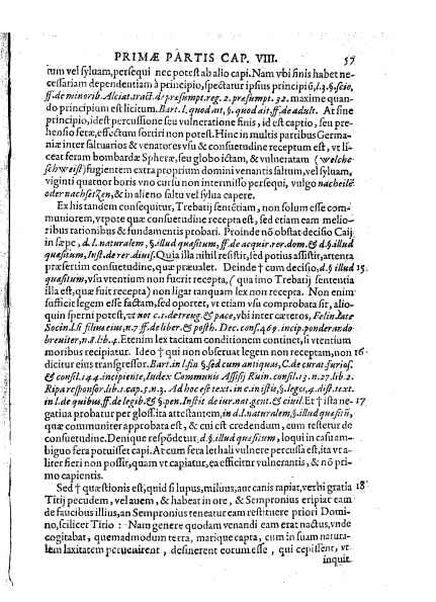 PRIMÆ PARTIS CAP. VIII. 57
tum vel syluam, persequi nec potest ab alio capi. Nam vbi finis habet ne-
cessariam dependentiã à principio, spectatur ipsius principiũ, l. 3. §. scio,
ff. de minorib. Alciat. tract. d' præsumpt. reg. 2. præsumpt. 32. maxime quan
do principium est licitum. Bart. l. quod ait, §. quod ait, ff. de adult. At sine
principio, id est percussione seu vulneratione finis, id est captio, seu pre-
hensio feræ, effectum sortiri non potest. Hinc in multis partibus Germa
niæ inter saltuarios & venatores vsu & consuetudine receptum est, vt li-
ceat feram bombardæ Spheræ, seu globo ictam, & vulneratam (welche
schweist) fugientem extra proprium domini venantis saltum, vel syluam,
viginti quatuor horis vno cursu non intermisso persequi, vulgo nacheilẽ
oder nachsetzen, & in alieno saltu vel sylua capere.
Ex his tandem consequitur, Trebatij sentẽtiam, non solum esse com
muniorem, vtpote quæ consuetudine recepta est, sed etiam eam melio-
ribus rationibus & fundamentis probari. Proinde nõ obstat decisio Caij
in sæpe, d. l. naturalem, §. illud quæsitum, ff. de acquir. rer. dom. & d. §. illud
quæsitum, Inst. de rer. diuis. Quia illa nihil resistit, sed potius assistit, attenta
præsertim consuetudine, quæ præualet. Deinde † cum decisio, d. §. illud 15.
quæsitum, vsu vtentium non fuerit recepta, (qua imo Trebatij sententia
illa est, quæ fuit recepta) non ligat tanquam lex non recepta. Non enim
sufficit legem esse factam, sed oportet, vt etiam vsu comprobata sit, alio-
quin sperni potest, vt not c. 1. de treug. & pace, vbi inter cæteros, Felin. late
Socin. l. si filius eius, n. 7. ff. de liber. & posth. Dec. cons. 469. incip. ponderando
breuiter, n. 8. lib. 4. Etenim lex tacitam conditionem continet, li vtentium
moribus recipiatur. Ideo † qui non obseruat legem non receptam, non 16.
dicitur eius transgressor. Bart. in l. fin. §. sed cum antiquas, C. de curat. furios.
& consil. 144. incipiente, Iudex Communis Assisij Ruin. consil. 13. n. 27. lib. 2.
Ripa responsor. lib. 2. cap. 5. n. 3. Ad hoc est text. in c. in istis, §. leges, 4. dist. text.
in l. de quibus, ff. de legib. & §. pen. Instit. de iur. nat. gent. & ciuil. Et † ista ne- 17
gatiua probatur per gloss. ita attestantem, in d. l. naturalem, §. illud quæsitũ,
quæ communiter approbata est, & cui est credendum, cum testetur de
consuetudine. Denique respõdetur, d. §. illud quæsitum, loqui in casu am-
biguo fera potuisset capi. At cum fera lethali vulnere percussa est, ita vt a-
liter fieri non possit, quam vt capiatur, ea efficitur vulnerantis, & nõ pri-
mo capientis.
Sed † quæstionis est, quid si lupus, miluus, aut canis rapiat, verbi gratia 18
Titij pecudem, vel auem, & habeat in ore, & Sempronius eripiat eam
de faucibus illius, an Sempronius teneatur eam restituere priori Domi-
no, scilicet Titio: Nam genere quodam venandi eam erat nactus, vnde
cogitabat, quemadmodum terra, marique capta, cum in suam natura-
lem laxitatem peruenirent, desinerent eorum esse, qui cepissent, vt
inquit